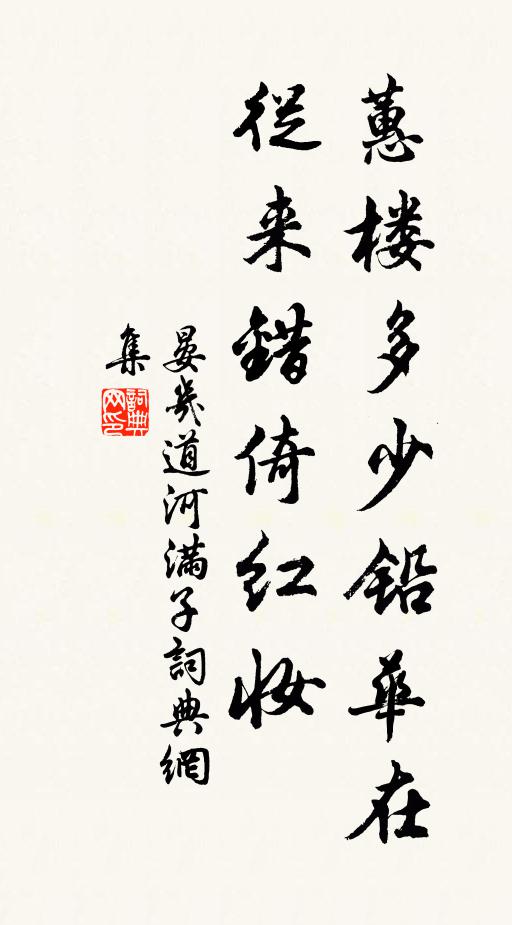 蕙楼多少铅華在
従来錯倚红妆
晏幾道河满子詞典網
集
詞典网印